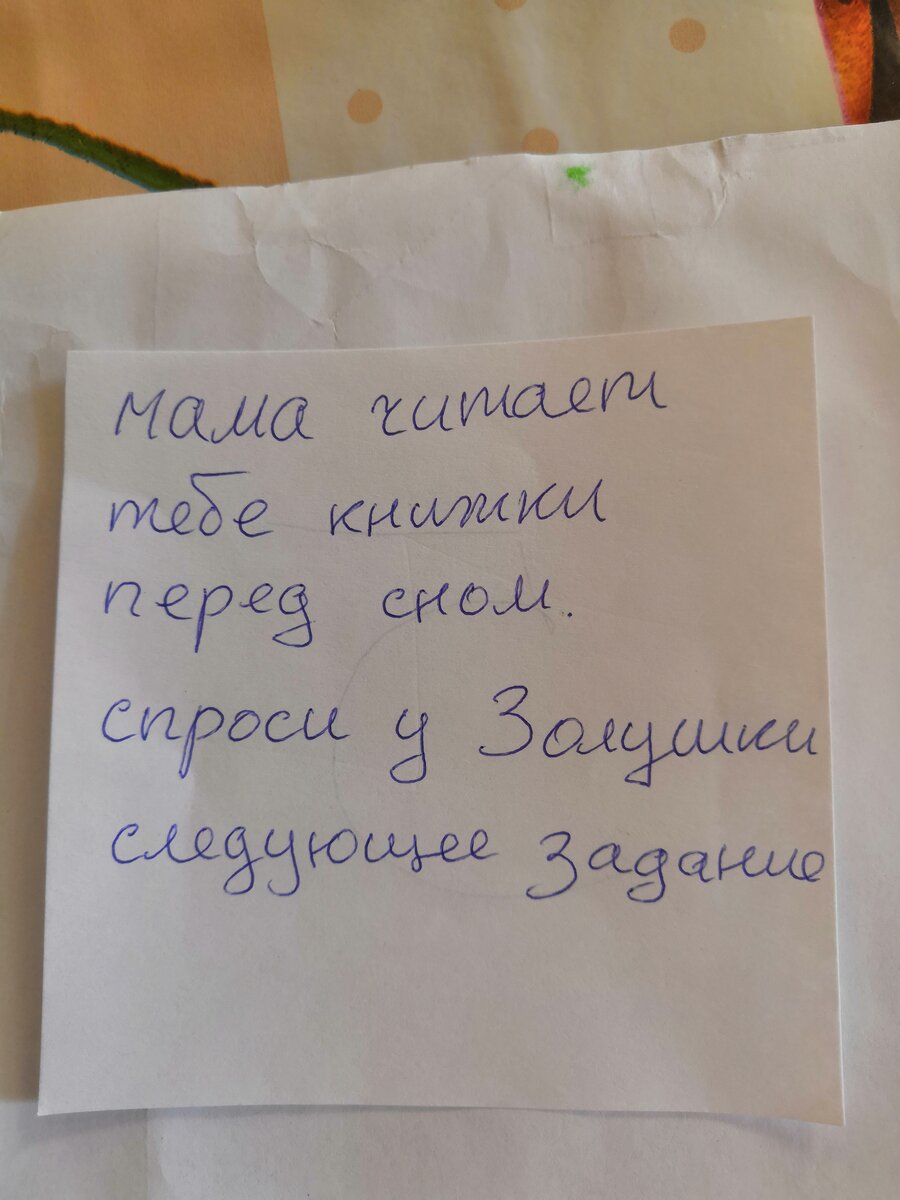 мама читает
тебе книжки
перед сном.
спроси у Золушки
следующее задание